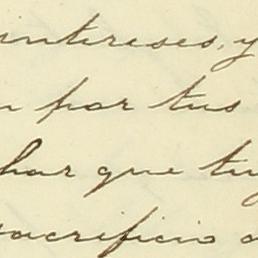 intereses, y
n por tus
har que tu
sacrificio a